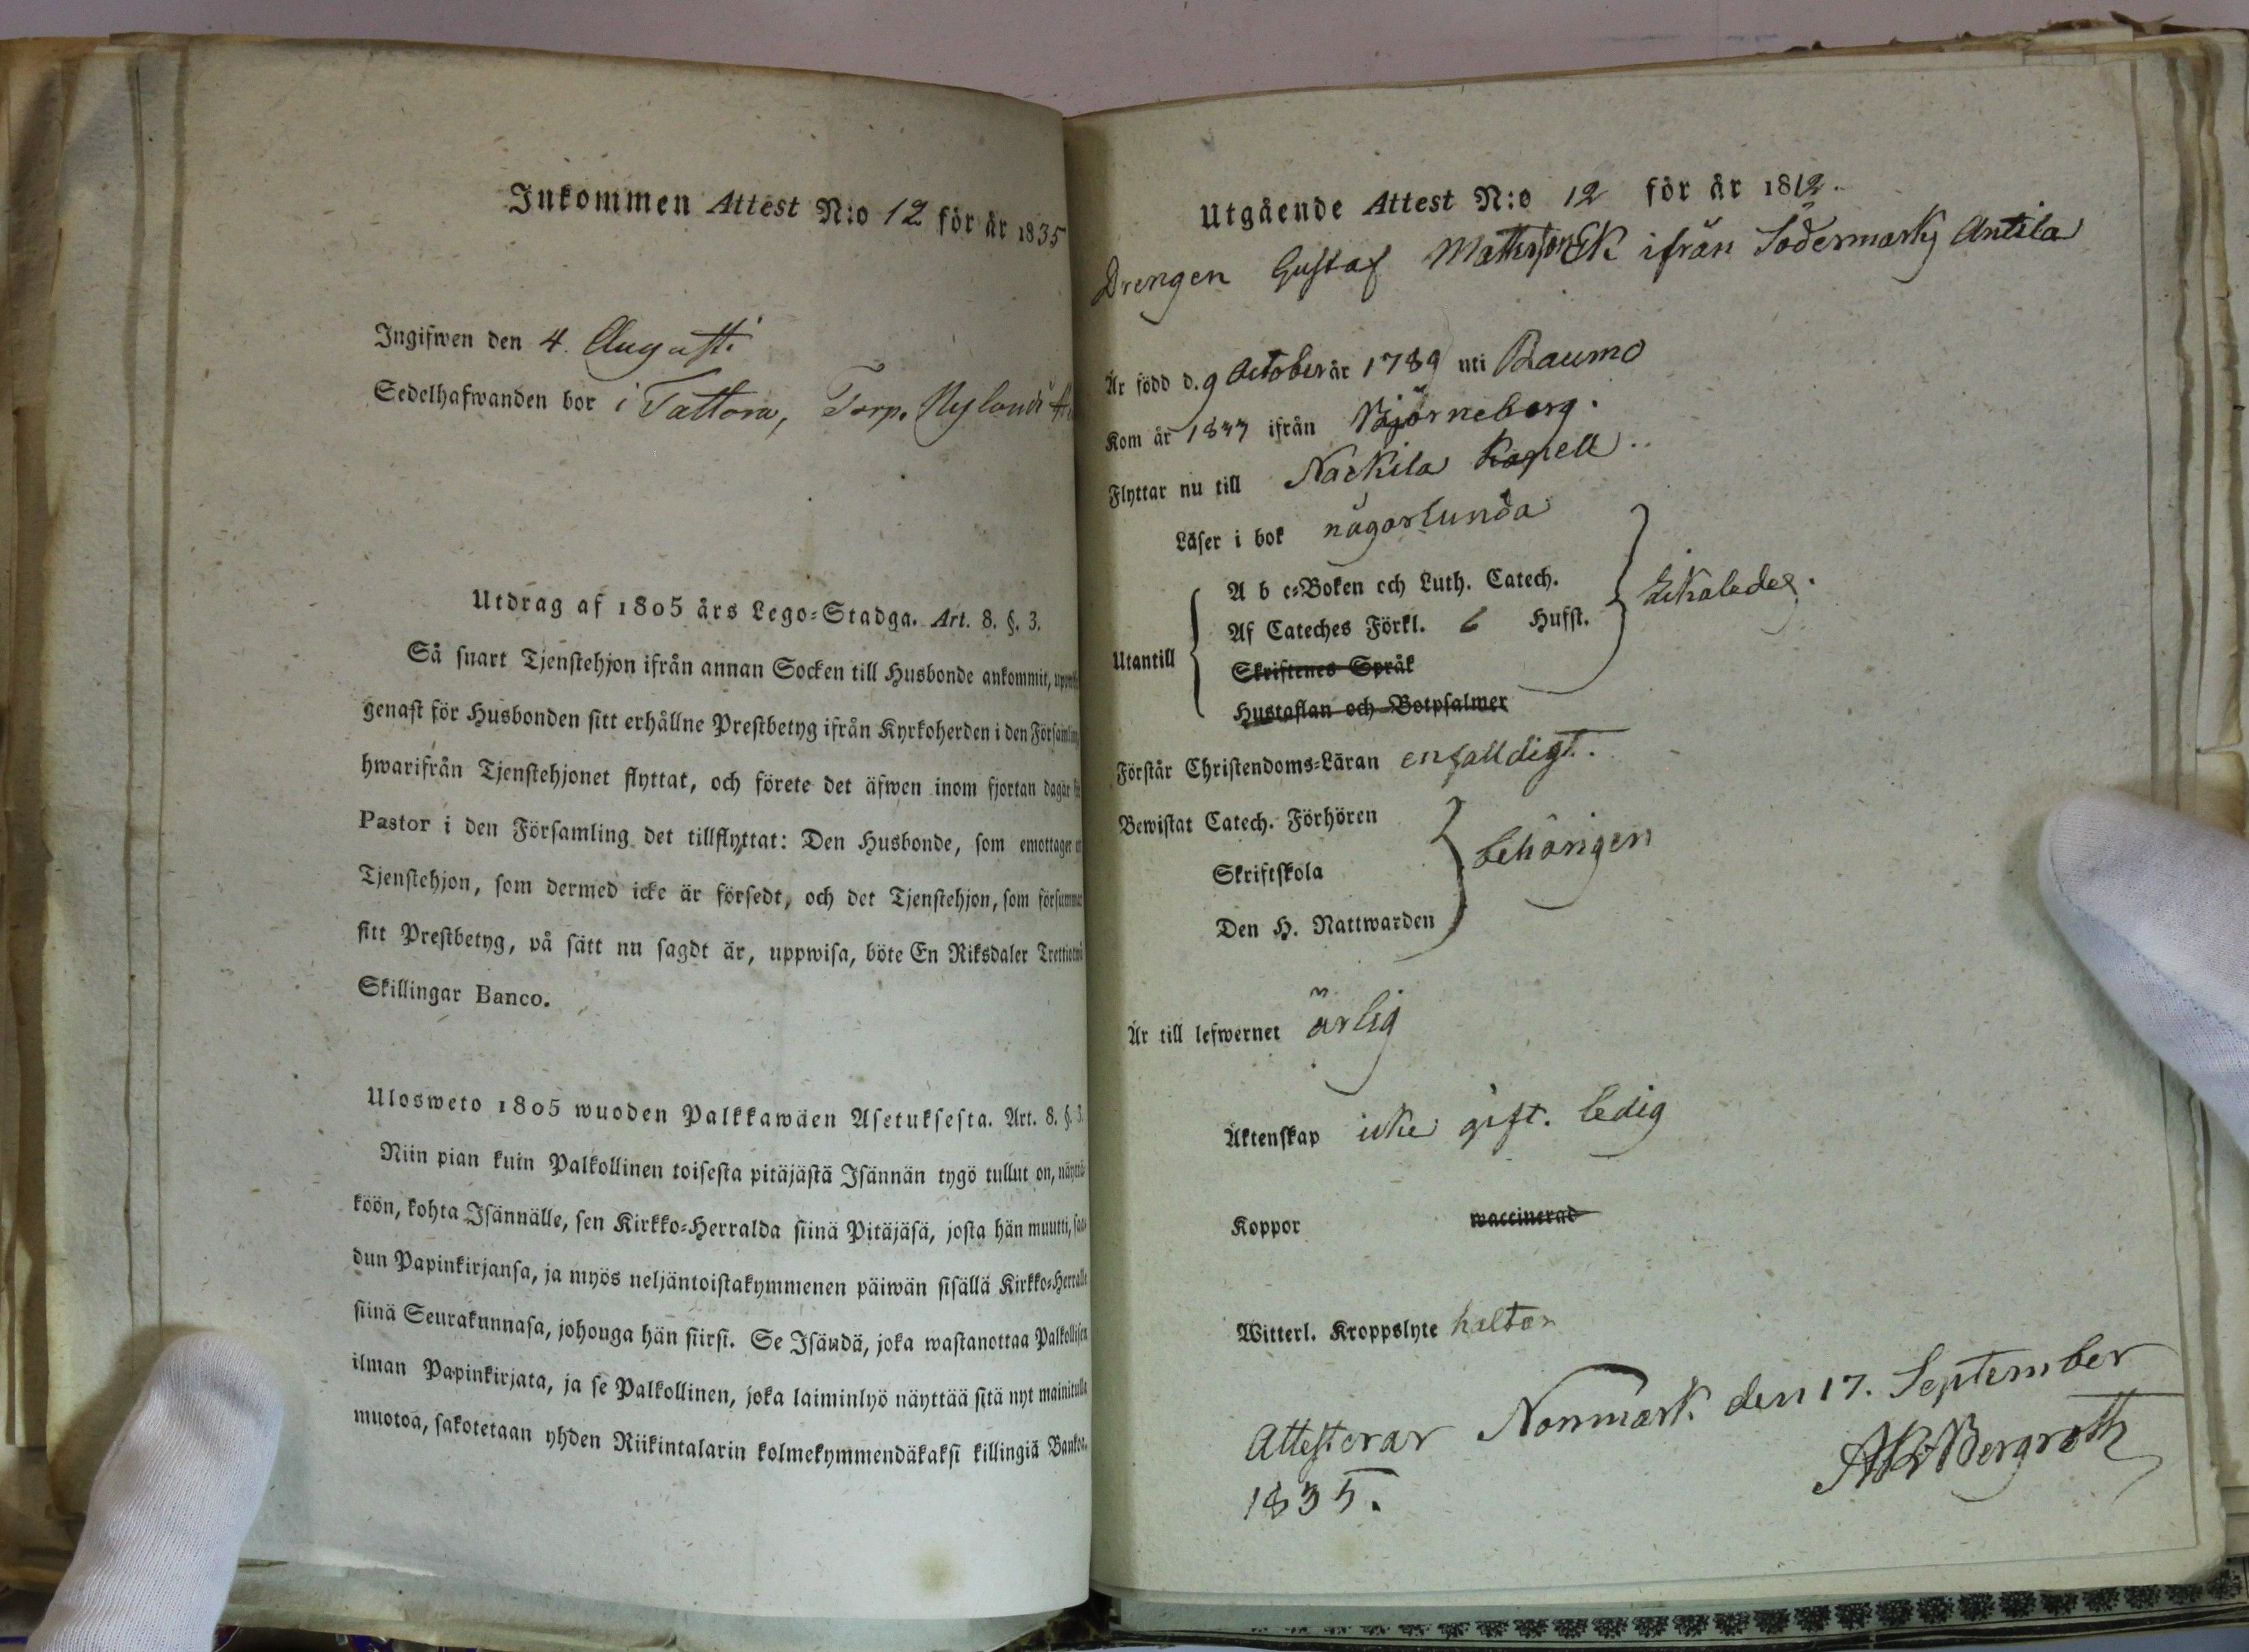 Inkommen Attest N:o 12 för år 1835
Ingifwen den 4. Augusti
Sedelhafwanden bor i Tattara, Torp. Nylund
Utdrag af 1805 års Lego-Stadga. Art. 8. §. 3.
Så snart Tjenstehjon ifrån annan Socken till Husbonde ankommit,
genast för Husbonden sitt erhållne Prestbetyg ifrån Kyrkoherden i den Församling
hwarifrån Tjenstehjonet flyttat, och förete det äfwen inom fjortan dagar
Pastor i den Församling det tillflyttat: Den Husbonde, som emottager
Tjenstehjon, som dermed icke är försedt, och det Tjenstehjon, som försummar
sitt Prestbetyg, på sätt nu sagdt är, uppwisa, böte En Riksdaler Trettiotwå
Skillingar Banco.
Ulosweto 1805 wuoden Palkkawäen Asetuksesta. Art. 8. §. 3.
Niin pian kuin Palkollinen toisesta pitäjästä Isännän tygö tullut on, näyttä-
köön, kohta Isännälle, sen Kirkko-Herralda siinä Pitäjäsä, josta hän muutti, saa-
dun Papinkirjansa, ja myös neljäntoistakymmenen päiwän sisällä Kirkko-Herralle
siinä Seurakunnasa, johonga hän siirsi. Se Isändä, joka wastanottaa Palkollisen
ilman Papinkirjata, ja se Palkollinen, joka laiminlyö näyttää sitä nyt mainitulla
muotoa, sakotetaan yhden Riikintalarin kolmekymmendäkaksi killingiä Bankos.
Utgående Attest N:o 12 för år 1812.
Drengen Gustaf Mattsson Ek ifrån Södermark Antila
Är född d. 9 October år 1789 uti Raumo
Kom år 1833 ifrån Björneborg.
Flyttar nu till Nackila Kapell.
Läser i bok någorlunda
Utantill
A b c-Boken och Luth. Catech.
Af Cateches Förkl. 6 Hufst.
Skriftenes Språk
Hustaflan och Botpsalmer
likaledes.
Förstår Christendoms-Läran enfalldigt.
Bewistat Catech. Förhören
Skriftskola
Den H. Nattwarden
behörigen
Är till lefwernet ärlig
Äktenskap icke gift. ledig
Koppor waccinerad
Witterl. Kroppslyte haltar
Attesterar Norrmark den 17. September
1835.
Bergroth